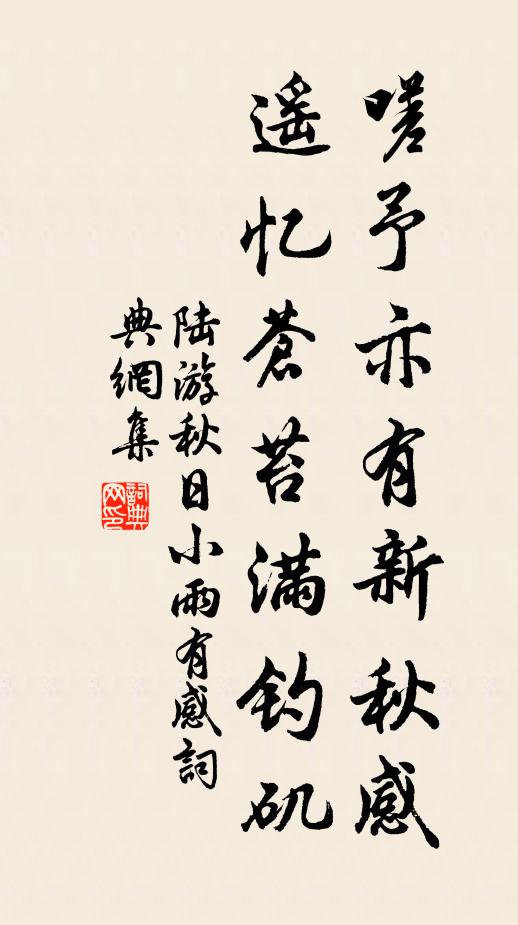 嗟予亦有新秋感
遥忆蒼苔满钓矶
陆游秋日小雨有感詞
典網集
詞典
网印